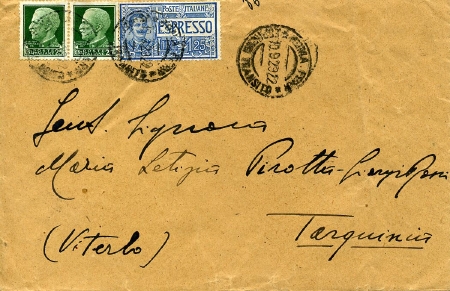 POSTE ITALIANE
ESPRESSO
10.9.29.22
Gent. Signora
Maria Letizia Pirotta-Giorgi
Tarquinia
(Viterbo)